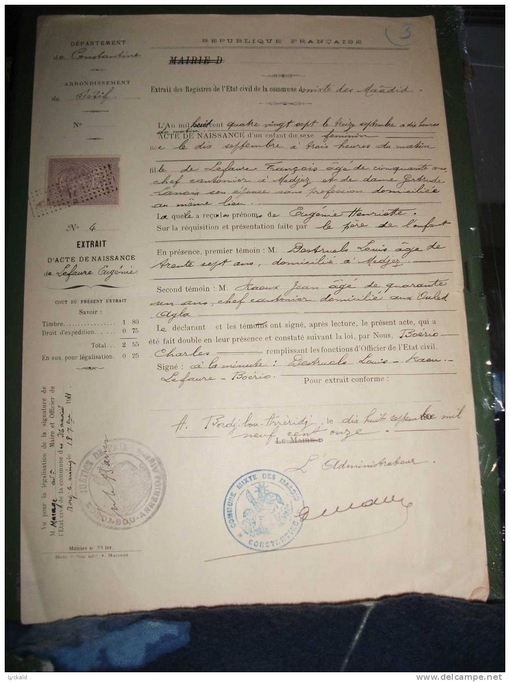 DÉPARTEMENT
de Constantine
ARRONDISSEMENT
de Sétif
No
No 4
EXTRAIT
D'ACTE DE NAISSANCE
de Lefaure Eugénie
COUT DU PRÉSENT EXTRAIT
Savoir :
Timbre. 1 80
Droit d'expédition. 0 75
Total. 2 55
En sus, pour légalisation 0 25
Vu pour la légalisation de la signature de
M
Maire et Officier de
l'État civil de la commune des
3
RÉPUBLIQUE FRANÇAISE
MAIRIE D
Extrait des Registres de l'Etat civil de la commune mixte des Maadid
L'An mil huit cent quatre vingt sept le treize septembre a dix heures
ACTE DE NAISSANCE d'un enfant du sexe féminin
né le dix septembre à trois heures du matin
fille de Lefaure François âgé de cinquante ans
chef cantonnier à Medjez et de dame Gertrude
son épouse sans profession domiciliée
au même lieu.
Laquelle a reçu les prénoms de Eugénie Henriette.
Sur la réquisition et présentation faite par le père de l'enfant
En présence, premier témoin : M. Destruels Louis âgé de
trente sept ans, domicilié à Medjez
Second témoin : M. Raoux Jean âgé de quarante
un ans, chef cantonnier domicilié aux Ouled
Agla
Le déclarant et les témoins ont signé, après lecture, le présent acte, qui a
été fait double en leur présence et constaté suivant la loi, par Nous, Boério
Charles, remplissant les fonctions d'Officier de l'Etat civil.
Signé : à la minute : Destruels Louis - Raoux
Lefaure - Boério. Pour extrait conforme :
A Bordj-bou-Arréridj, le dix huit septembre mil
neuf cent onze.
Le Maire
L'Administrateur
COMMUNE MIXTE DES MAADID
CONSTANTINE
JUSTICE DE PAIX
BORDJ-BOU-ARRÉRIDJ
lyckald
©delcampe.net